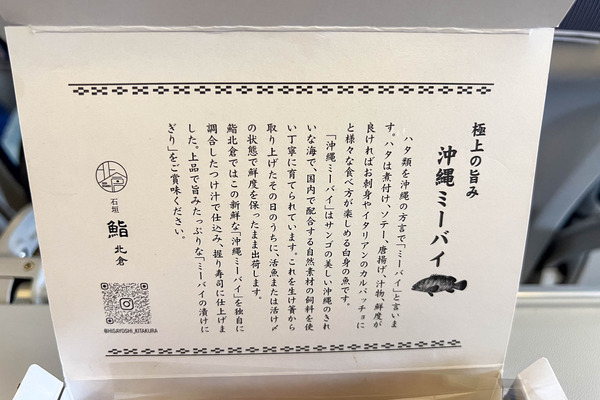 極上の旨み
沖縄ミーバイ
ハタ類を沖縄の方言で「ミーバイ」と言いま
す。ハタは煮付け、ソテー、唐揚げ、汁物、鮮度が
良ければお刺身やイタリアンのカルパッチョに
と様々な食べ方が楽しめる白身の魚です。
「沖縄ミーバイ」はサンゴの美しい沖縄のきれ
いな海で、国内で配合する自然素材の飼料を使
い丁寧に育てられています。これを生け簀から
取り上げたその日のうちに、活魚または活け〆
の状態で鮮度を保ったまま出荷します。
鮨北倉ではこの新鮮な「沖縄ミーバイ」を独自に
調合したつけ汁で仕込み、握り寿司に仕上げま
した。上品で旨みたっぷりな「ミーバイの漬けに
ぎり」をご賞味ください。
石垣
鮨 北倉
@HISAYOSHI_KITAKURA